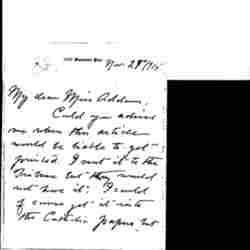 Nov. 28/15
My dear Miss Addams,
Could you advise
me where this article
would be liable to get
printed. I sent it to the
Tribune but they would
not have it. I could
of course get it into
the Catholic papers but